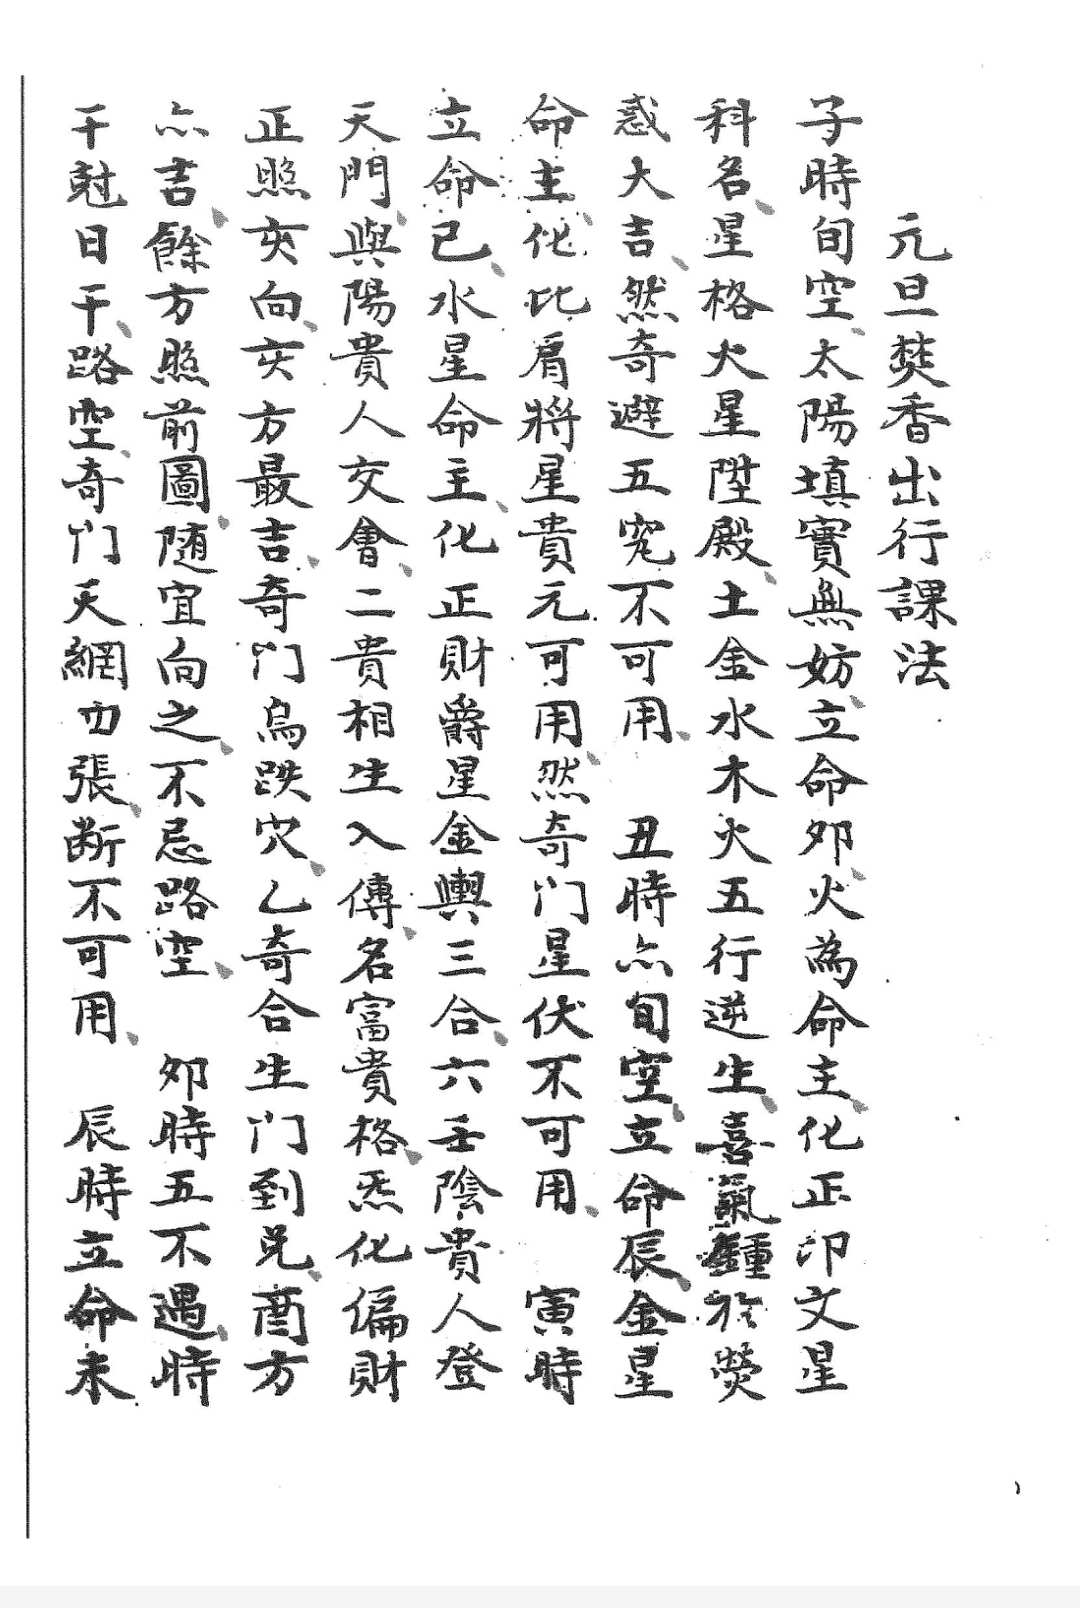 元旦焚香出行課法
子時旬空、太陽填實無妨、立命夘、火為命主、化正印文星
科名、星格火星陞殿、土金水木火五行逆生、喜氣鍾於熒
惑大吉、然奇避五究不可用、 丑時亦旬空、立命辰、金星
命主、化比肩將星貴元可用、然奇门星伏不可用、 寅時
立命巳、水星命主、化正財爵星金輿三合、六壬陰貴人登
天門、與陽貴人交會、二貴相生入傳、名富貴格、炁化偏財
正照亥向、亥方最吉、奇门鳥跌穴、乙奇合生门到兑、酉方
亦吉、餘方照前圖、随宜向之、不忌路空、 夘時五不遇、時
干尅日干、路空、奇门天網四張、断不可用、 辰時立命未